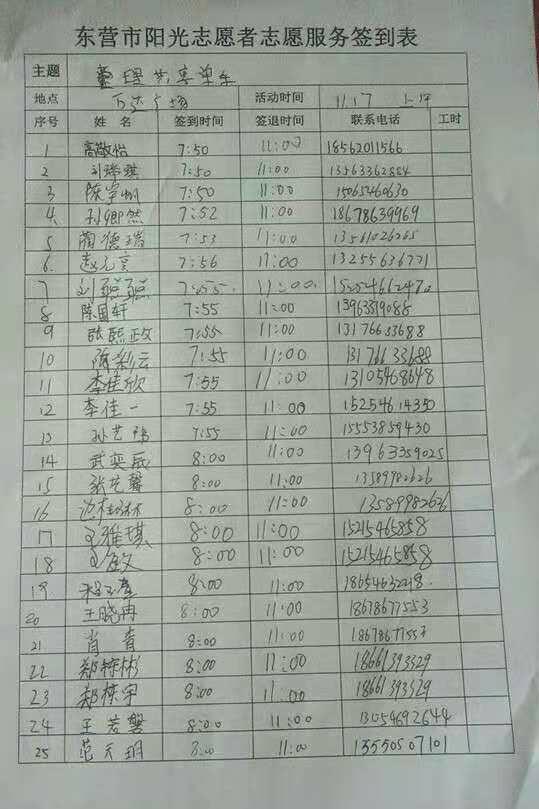 东营市阳光志愿者志愿服务签到表
主题 整理共享单车
地点 万达广场 活动时间 11.17 上午
序号 姓 名 签到时间 签退时间 联系电话 工时
1 高敬怡 7:50 11:00 18562011566
2 刘瑾琪 7:50 11:00 13563362884
3 陈宇帆 7:50 11:00 15065460630
4 孙卿然 7:52 11:00 18678639969
5 蔺德瑞 7:53 11:00 13561026265
6 赵元京 7:56 11:00 13255636771
7 刘硕硕 7:55 11:00
8 陈国轩 7:55 11:00 13963319088
9 张熙政 7:55 11:00 13176633688
10 陈彩云 7:55 11:00 13176633688
11 李佳欣 7:55 11:00 13105468648
12 李佳一 7:55 11:00 15254614350
13 孙艺 7:55 11:00 15553859430
14 武奕辰 8:00 11:00 13963359025
15 张艺馨 8:00 11:00 13589982626
16 边 8:00 11:00 13589982626
17 王雅琪 8:00 11:00 15215465858
18 文 8:00 11:00 15215465858
19 程 8:00 11:00
20 王晓冉 8:00 11:00 18678677553
21 肖青 8:00 11:00 18678677553
22 郑梓彬 8:00 11:00 18661393529
23 郑梓宇 8:00 11:00 18661393529
24 王若馨 8:00 11:00 13054692644
25 范天玥 8:00 11:00 13550507101